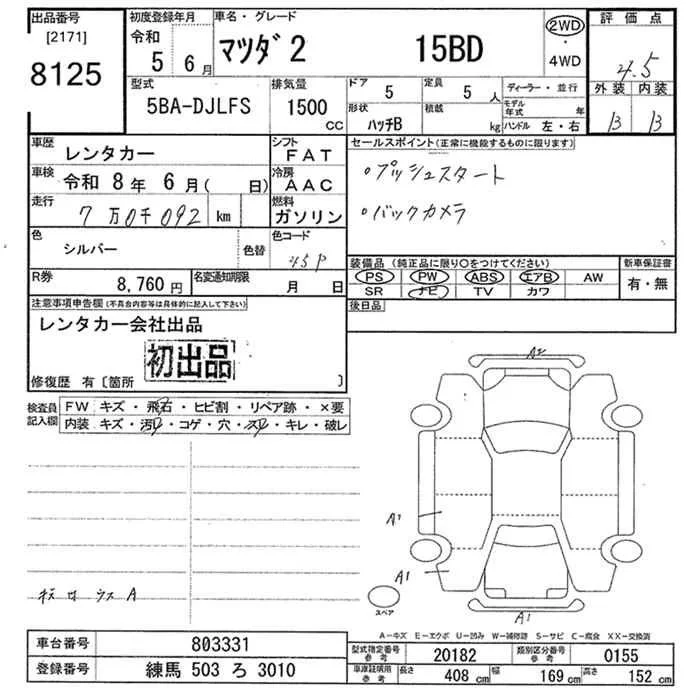 出品番号
[2171]
8125
初度登録年月
令和
5 6月
車名・グレード
マツダ2 15BD
2WD
・
4WD
評価点
4.5
外装 内装
B B
型式
5BA-DJLFS
排気量
1500
CC
ドア 5
定員 5人
形状 ハッチB
積載 kg
ディーラー・並行
モデル年式 年
ハンドル 左・右
車歴 レンタカー
シフト FAT
車検 令和 8年 6月( 日)
冷房 AAC
走行 7万0千092 km
燃料 ガソリン
色 シルバー
色替
色コード 45P
R券 8,760円
名変通知期限 月 日
セールスポイント(正常に機能するものに限ります)
・プッシュスタート
・バックカメラ
装備品(純正品に限り○をつけてください)
新車保証書
PS PW ABS エアB AW
SR ナビ TV カワ
有・無
後日品
注意事項申告欄(不具合内容等は具体的に記入して下さい)
レンタカー会社出品
初出品
修復歴 有〔箇所 〕
検査員記入欄
FW キズ・飛石・ヒビ割・リペア跡・×要
内装 キズ・汚れ・コゲ・穴・スレ・キレ・破レ
A2
A1
A1
A1
スペア
A-キズ E-エクボ U-凹み W-補修跡 S-サビ C-腐食 XX-交換済
車台番号 803331
登録番号 練馬 503 ろ 3010
型式指定番号 参考 20182
類別区分番号 参考 0155
車庫証明用 参考
長さ 408 cm
幅 169 cm
高さ 152 cm